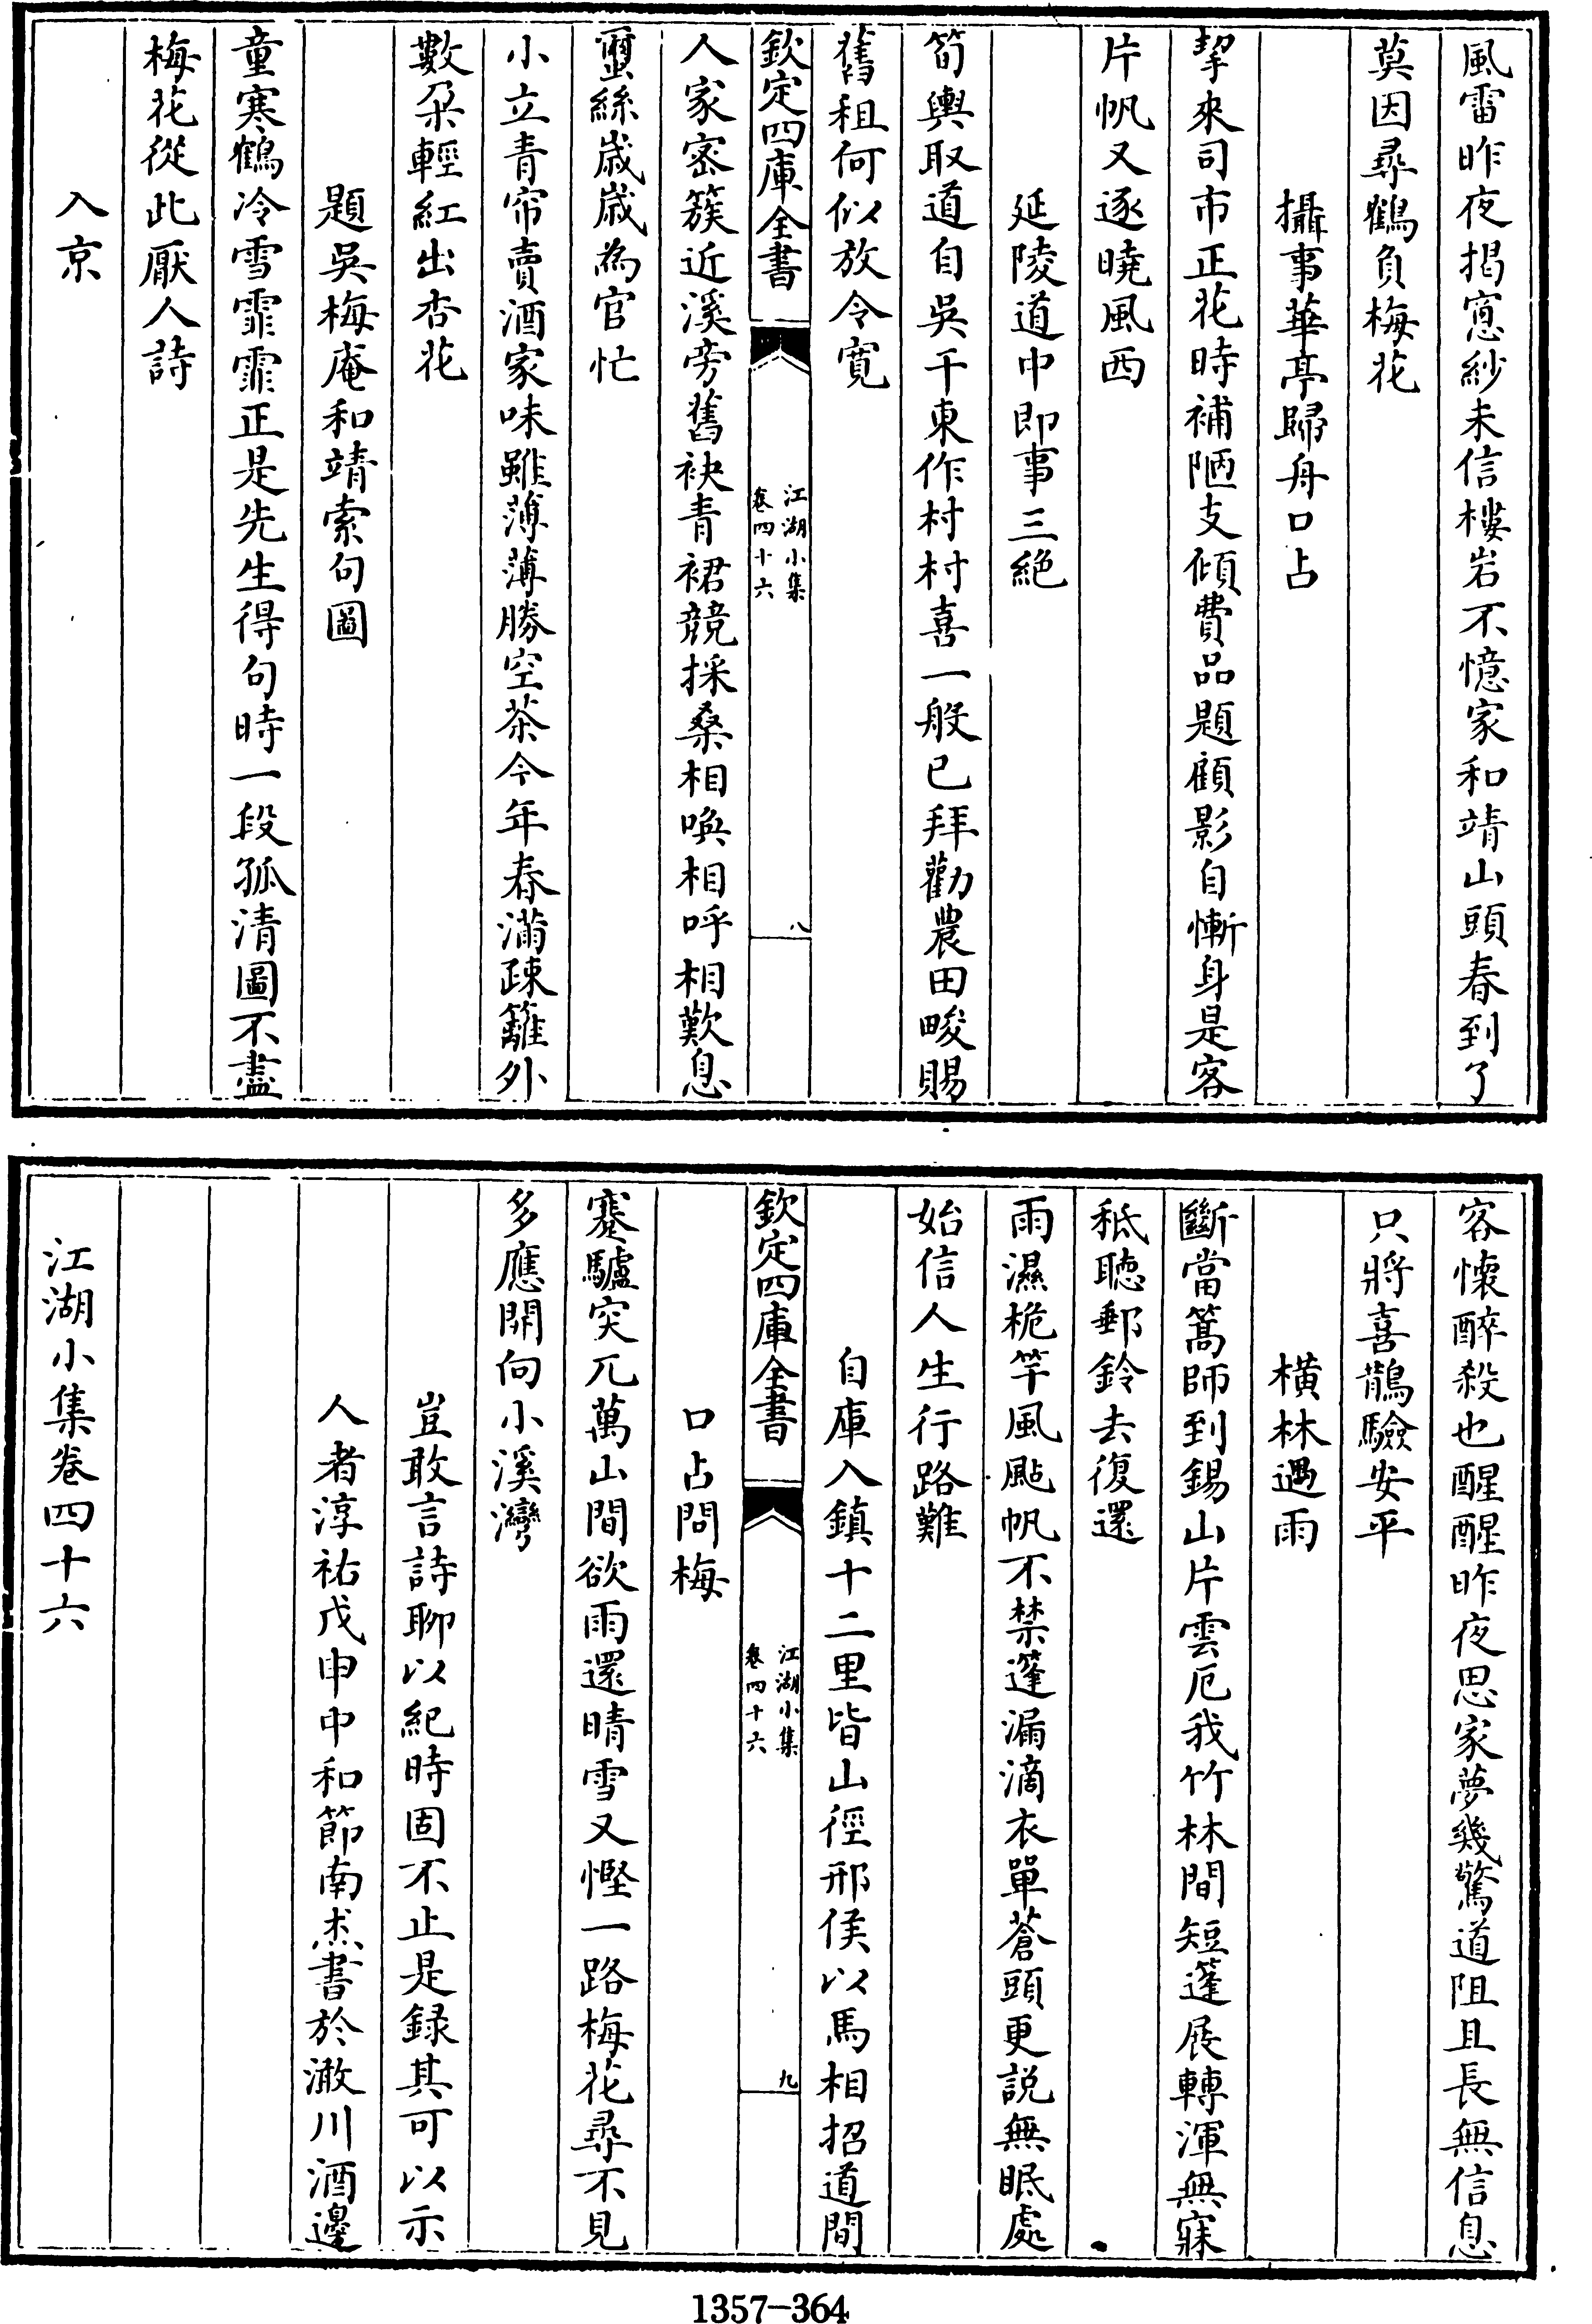 風雷昨夜揭窓紗未信樓岩不憶家和靖山頭春到了
莫因尋鶴負梅花
攝事華亭歸舟口占
挈來司市正花時補陋支傾費品題顧影自慚身是客
片帆又逐曉風西
延陵道中即事三絶
筍輿取道自吳干東作村村喜一般已拜勸農田畯賜
舊租何似放令寛
欽定四庫全書
江湖小集
卷四十六
八
人家密簇近溪旁舊袂青裙競採桑相喚相呼相歎息
蠒絲歲歲為官忙
小立青帘賣酒家味雖薄薄勝空茶今年春滿疎籬外
數朶輕紅出杏花
題吳梅庵和靖索句圖
童寒鶴冷雪霏霏正是先生得句時一段孤清圖不盡
梅花從此厭人詩
入京
客懷醉殺也醒醒昨夜思家夢幾驚道阻且長無信息
只將喜鵲驗安平
橫林遇雨
斷當篙師到錫山片雲厄我竹林間短蓬展轉渾無寐
秪聴郵鈴去復還
雨濕桅竿風颭帆不禁蓬漏滴衣單蒼頭更説無眠處
始信人生行路難
自庫入鎮十二里皆山徑邢侯以馬相招道間
欽定四庫全書
江湖小集
卷四十六
九
口占問梅
蹇驢突兀萬山間欲雨還晴雪又慳一路梅花尋不見
多應開向小溪灣
豈敢言詩聊以紀時固不止是録其可以示
人者淳祐戊申中和節南杰書於澉川酒邊
江湖小集卷四十六
1357-364